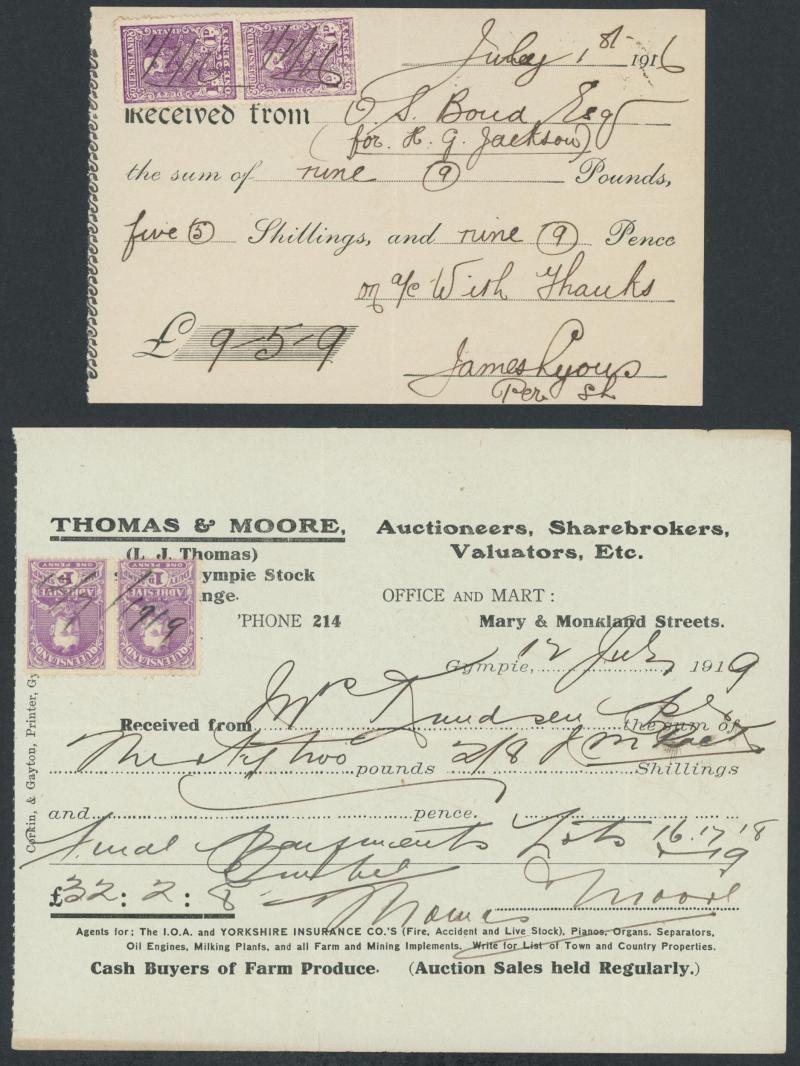 QUEENSLAND QUEENSLAND
STAMP STAMP
1D 1D
DUTY DUTY
ONE PENNY ONE PENNY
1/7/16 1/7/16
July 1st 1916
Received from O. S. Boud Esq
(for H. G. Jackson)
the sum of nine (9) Pounds,
five (5) Shillings, and nine (9) Pence
on a/c With Thanks
£ 9-5-9
James Lyons
Per
THOMAS & MOORE, Auctioneers, Sharebrokers,
(L. J. Thomas) Valuators, Etc.
ympie Stock
nge. OFFICE AND MART:
'PHONE 214 Mary & Monkland Streets.
QUEENSLAND QUEENSLAND
ADHESIVE ADHESIVE
DUTY
ONE PENNY ONE PENNY
1919
Gympie, 12 July 1919
Received from Knudsen the sum of
Thirty two pounds 2/8 Shillings
and pence.
Final payments Lots 16.17.18
19
£32: 2: 8 Thomas Moore
Agents for: The I.O.A. and YORKSHIRE INSURANCE CO.'S (Fire, Accident and Live Stock), Pianos, Organs. Separators,
Oil Engines, Milking Plants, and all Farm and Mining Implements. Write for List of Town and Country Properties.
Cash Buyers of Farm Produce. (Auction Sales held Regularly.)
Corkin, & Gayton, Printer, Gy